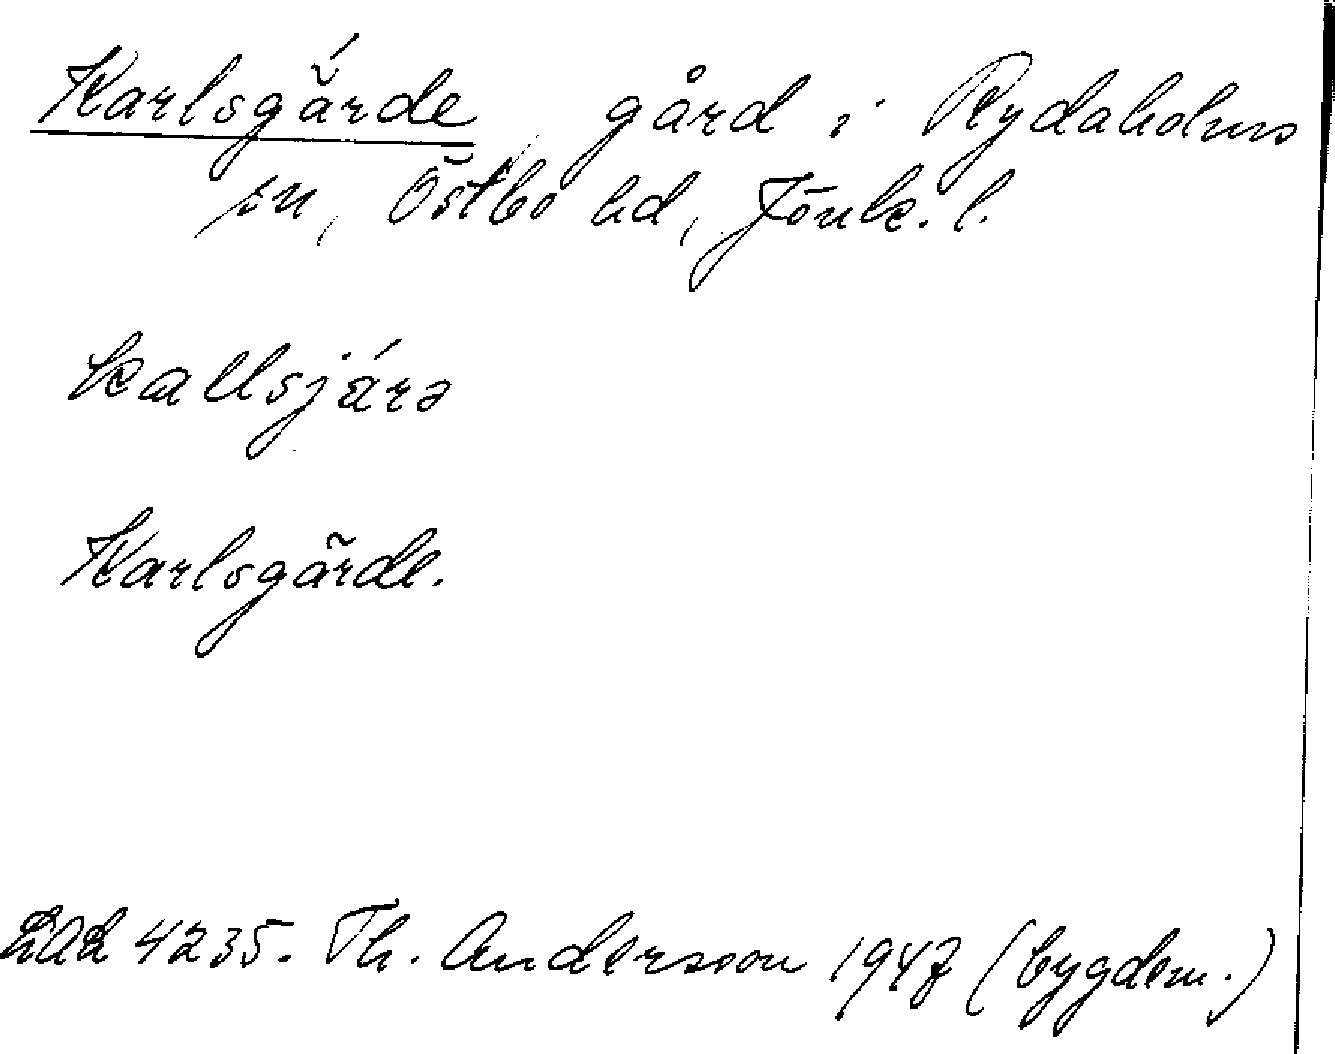 Karlsgä́rde, gård i Rydaholms
sn, Östbo hd, Jönk. l.
kallsjárə
Karlsgärde.
4235. Th. Andersson 1947 (bygdem.)